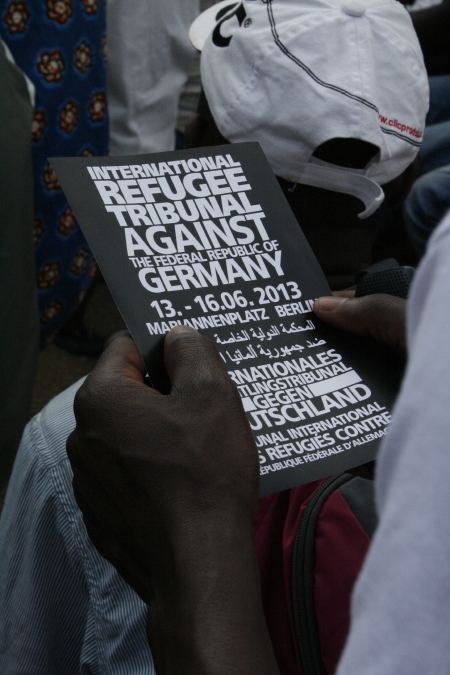 INTERNATIONAL
REFUGEE
TRIBUNAL
AGAINST
THE FEDERAL REPUBLIC OF
GERMANY
13. - 16.06. 2013
BERLIN
المحكمة الدولية الخاصة
ضد جمهورية المانيا
RNATIONALES
TLINGSTRIBUNAL
GEGEN
UTSCHLAND
UNAL INTERNATIONAL
S RÉFUGIÉS CONTRE
RÉPUBLIQUE FÉDÉRALE D'ALLEMAG